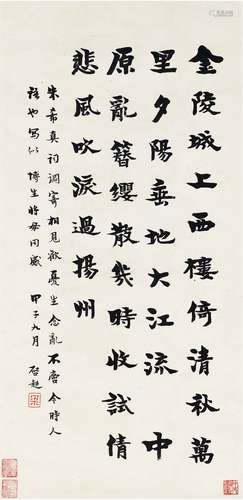 金陵城上西樓倚清秋萬
里夕陽垂地大江流中
原亂簪纓散幾時收試倩
悲風吹淚過揚州
朱希真詞調寄相見歡憂生念亂不啻今時人
語也寫似博生將毋同感 甲子九月 啟超